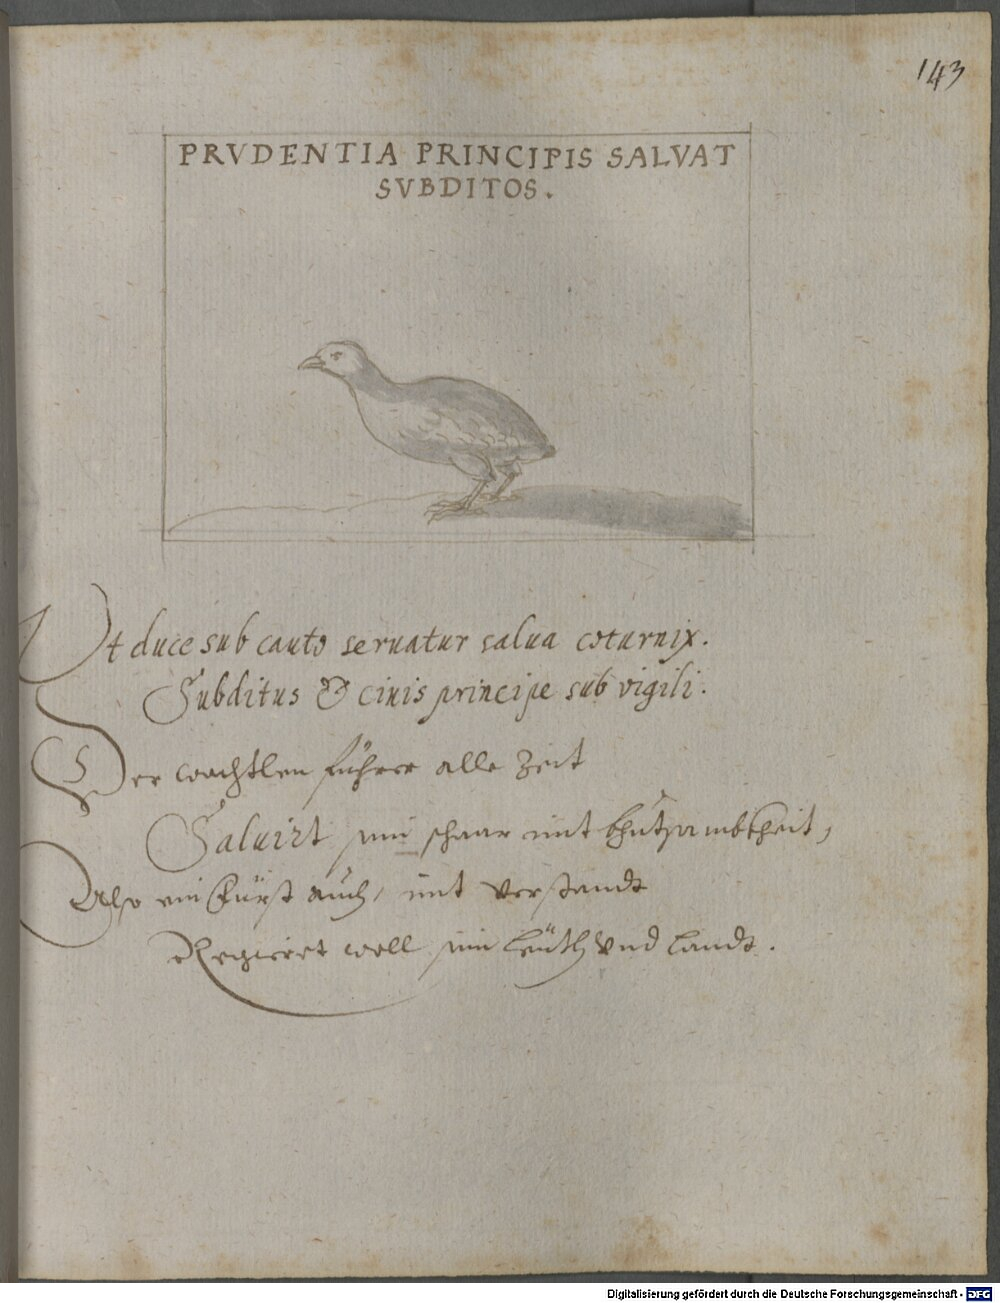 143
PRVDENTIA PRINCIPIS SALVAT
SVBDITOS.
Ut duce sub cauto seruatur salua coturnix.
Subditus & ciuis principe sub vigili.
Der wachtlen führer alle Zeit
Saluirt sein schaar mit bhutsambkheit,
Also ein Fürst auch, mit verstandt
Regieret woll sein leüth vnd landt.
Digitalisierung gefördert durch die Deutsche Forschungsgemeinschaft - DFG